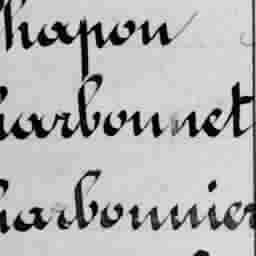 Chapon
Charbonnet
Charbonnier